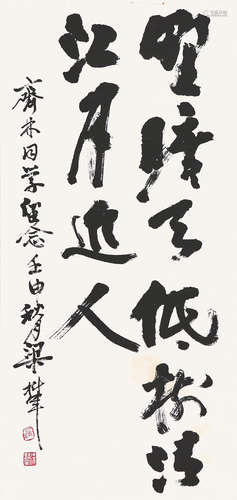 野旷天低树清
江月近人
齊木同学留念 壬申秋月 梁树年